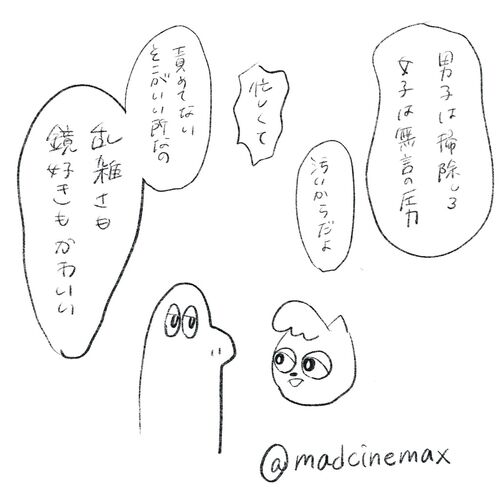 男子は掃除しろ
女子は無言の圧力
汚いからだよ
忙しくて
責めてない
そこがいい所なの
乱雑さも
鏡好きもかわいい
@madcinemax